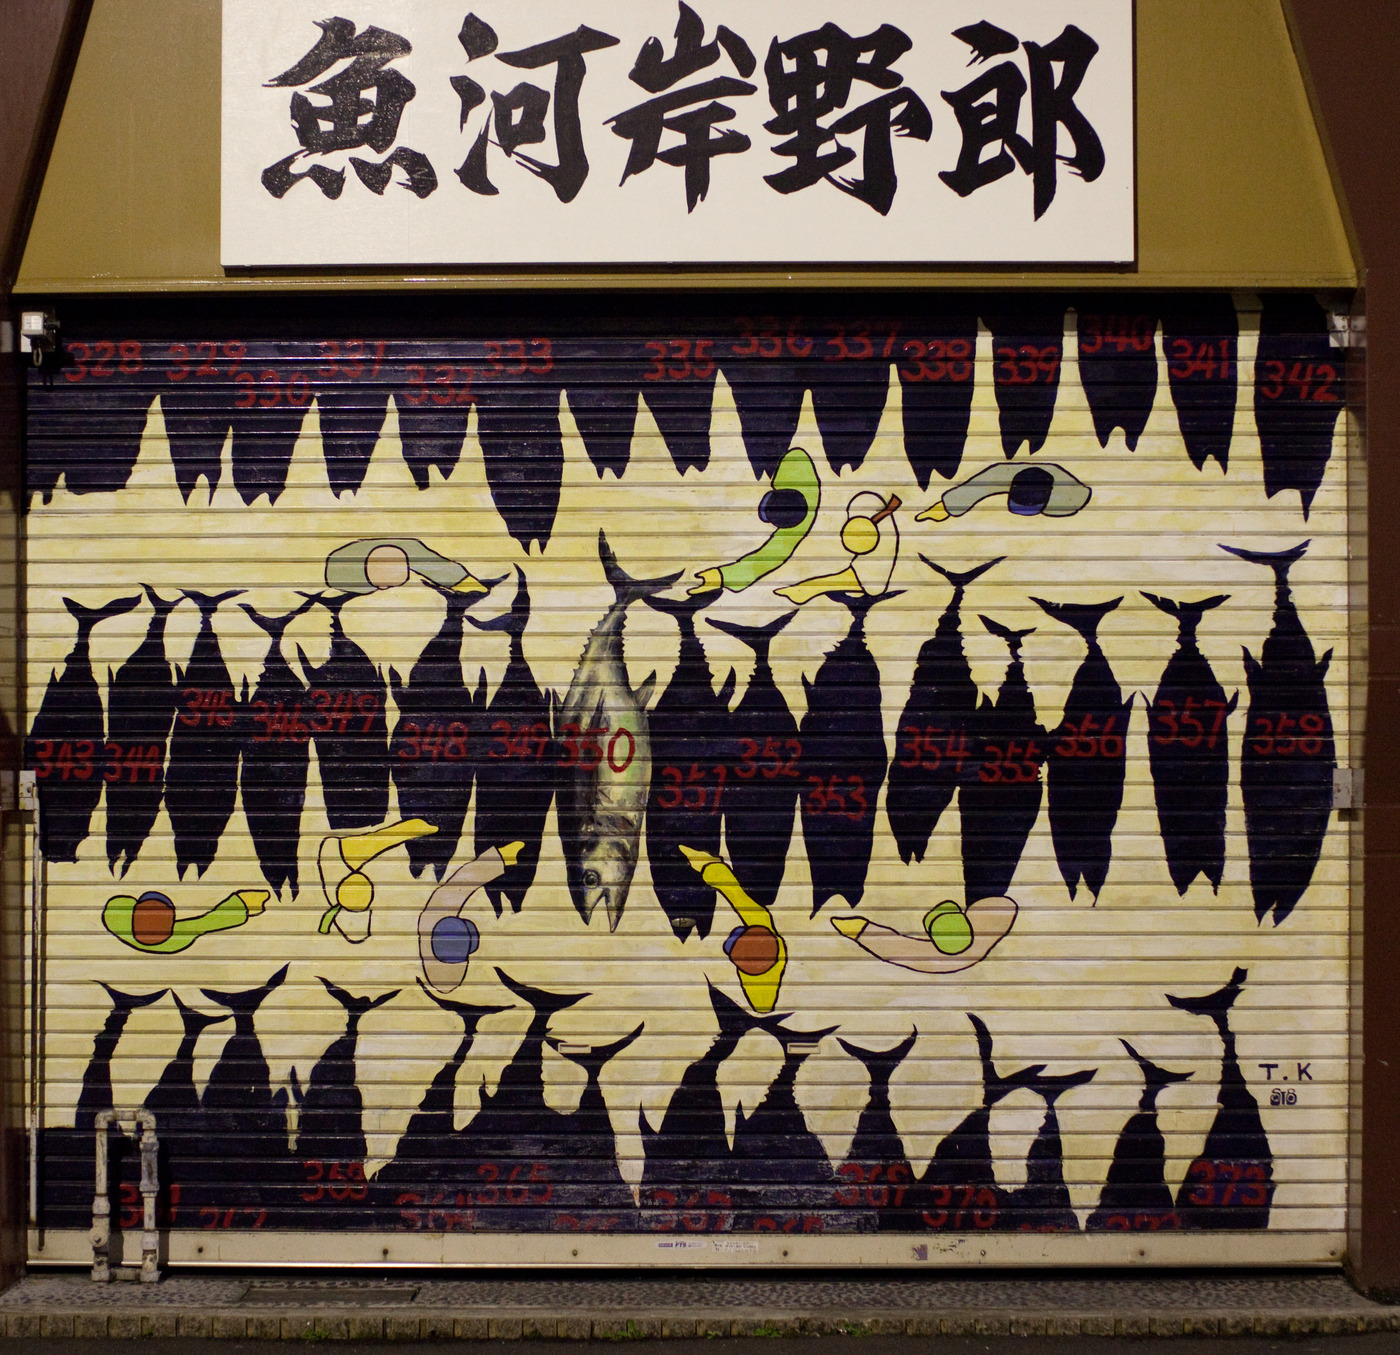 魚河岸野郎
328 329 330 331 332 333 335 336 337 338 339 340 341 342
343 344 345 346 349 348 349 350 351 352 353 354 355 356 357 358
363 364 365 367 369 370 373
T.K